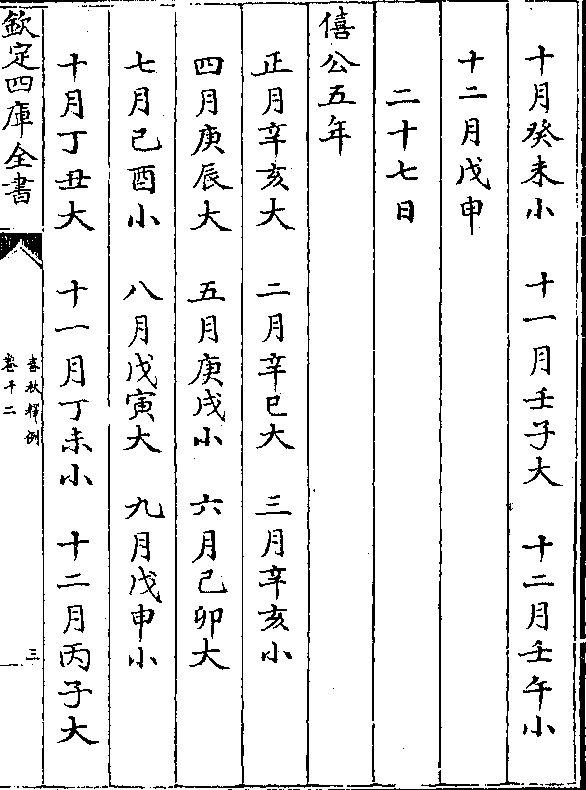 十月癸未小　十一月壬子大　十二月壬午小
十二月戊申
二十七日
僖公五年
正月辛亥大　二月辛巳大　三月辛亥小
四月庚辰大　五月庚戌小　六月己卯大
七月己酉小　八月戊寅大　九月戊申小
十月丁丑大　十一月丁未小　十二月丙子大
欽定四庫全書
春秋釋例
卷十二
三